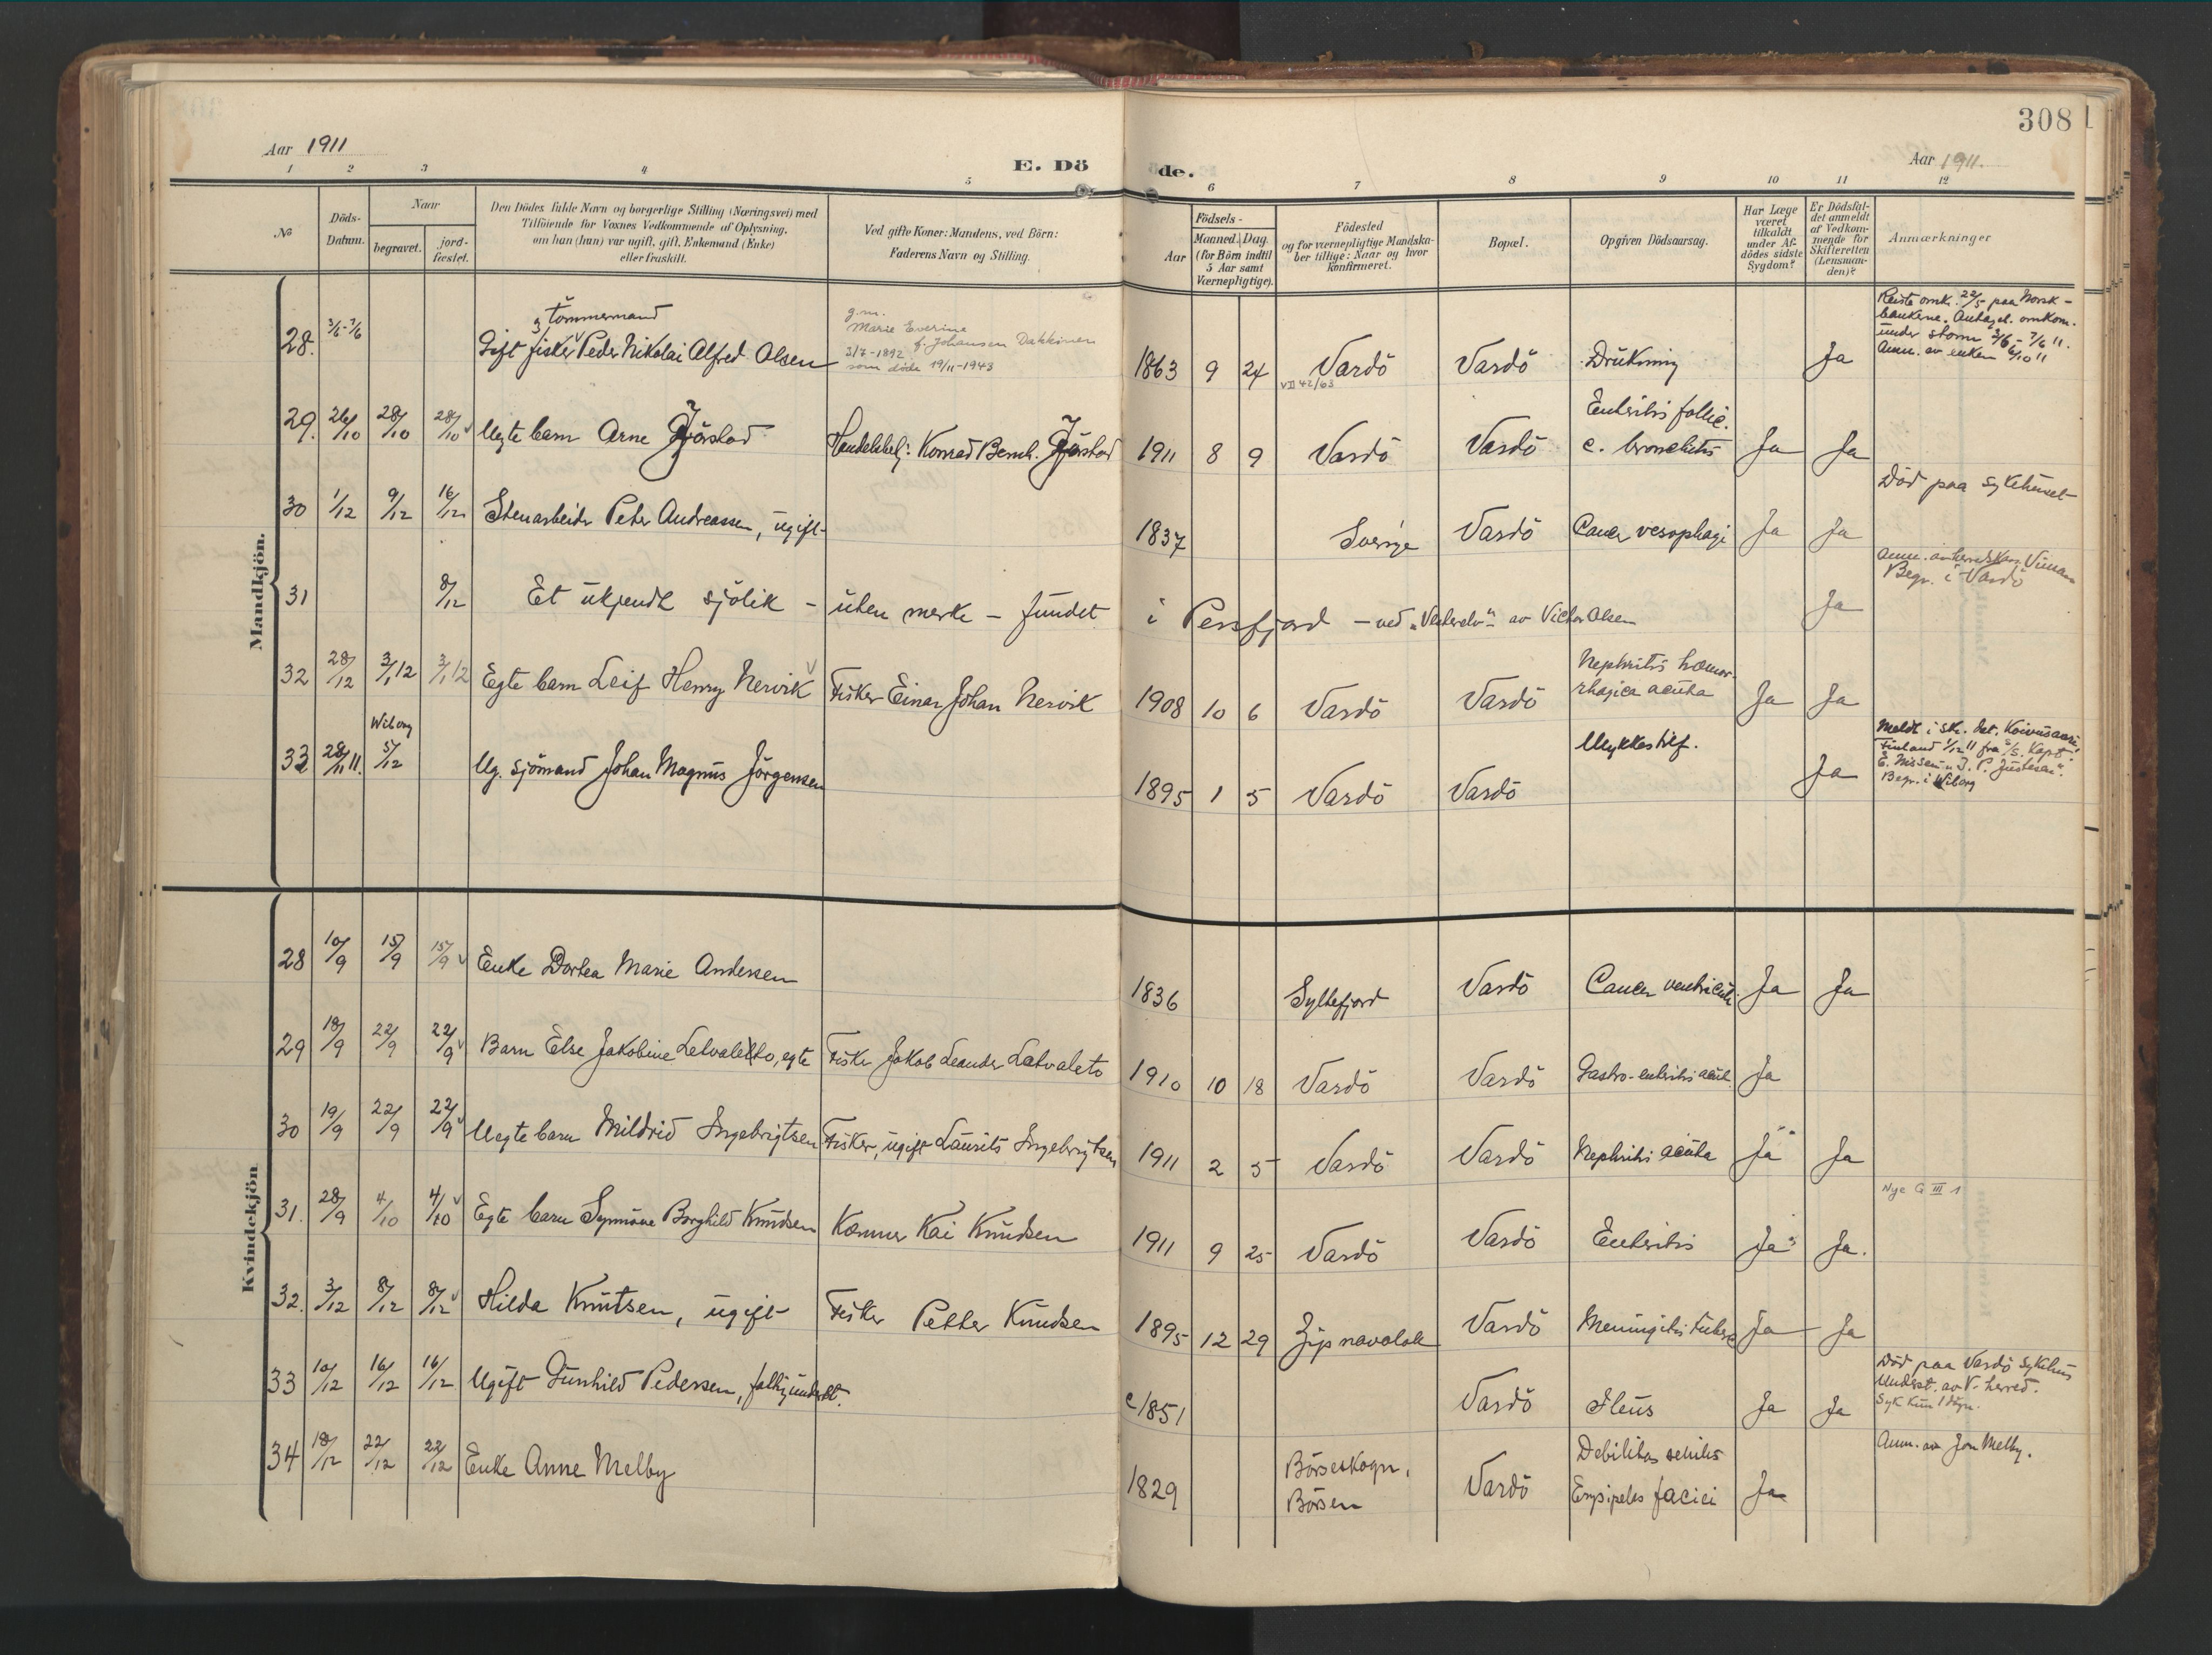 308
Aar 1911
E. Dö
de.
Aar 1911.
1 2 3 4 5 6 7 8 9 10 11 12
No
Döds-
Datum.
Naar
begravet.
jord-
fæstet.
Den Dödes fulde Navn og borgerlige Stilling (Næringsvei) med
Tilföiende for Voxnes Vedkommende af Oplysning,
om han (hun) var ugift, gift, Enkemand (Enke)
eller fraskilt.
Ved gifte Koner: Mandens, ved Börn:
Faderens Navn og Stilling.
Födsels-
Aar
Maaned. Dag.
(for Börn indtil
5 Aar samt
Værnepligtige).
Födested
og for værnepligtige Mandska-
ber tillige: Naar og hvor
konfirmeret.
Bopæl.
Opgiven Dödsaarsag.
Har Læge
været
tilkaldt
under Af-
dödes sidste
Sygdom?
Er Dödsfal-
det anmeldt
af Vedkom-
mende for
Skifteretten
(Lensman-
den)?
Anmærkninger
Mandkjön.
28. 3/6-7/6
tömmermand
Gift fisker Peder Nikolai Alfred Olsen
g.m.
Marie Everine
f. Johansen Dakkinen
3/7-1892
som döde 19/11-1943
1863 9 24 Vardö Vardö Drukning Ja
VII 42/63
Reiste omk. 22/5 paa Norsk-
bankerne. Antagel. omkom.
under storm 3/6-7/6 11.
Anm. av enken 6/10 11
29. 26/10 28/10 28/10 Uegte barn Arne Fjörstad
Konrad Bernh. Fjörstad 1911 8 9 Vardö Vardö
Enteritis follic.
c. bronchitis Ja Ja
30 1/12 9/12 16/12 Stenarbeider Peter Andreassen, ugift
1837 Sverige Vardö Cancer oesophagi Ja Ja
Död paa sykehuset
31 8/12 Et ukjendt sjölik - uten merke - fundet i Persfjord - ved "Vesterelv" av Victor Olsen Ja
Begr. i Vardö
32 28/12 3/1 12 3/1 12 Egte barn Leif Henry Nervik Fisker Einar Johan Nervik 1908 10 6 Vardö Vardö
Nephritis hæmor-
rhagica acuta Ja Ja
Wiborg
33 28/11 11. 5/12 Ug. sjömand Johan Magnus Jörgensen 1895 1 5 Vardö Vardö Ulykkestilf. Ja
Meldt i sk. dat. Koivusaari,
Finland 1/12 11 fra S/S. Kapt.
E. Nissen "J. P. Justesen".
Begr. i Wiborg
Kvindekjön
28 10/9 15/9 15/9 Enke Dortea Marie Andersen 1836 Syltefjord Vardö Cancer ventriculi Ja Ja
29 18/9 22/9 22/9 Barn Else Jakobine Letvaleto, egte Fisker Jakob Leander Latvaleto 1910 10 18 Vardö Vardö Gastro-enteritis acut. Ja
30 19/9 22/9 22/9 Uegte barn Mildrid Ingebrigtsen Fisker, ugift Laurits Ingebrigtsen 1911 2 5 Vardö Vardö Nephritis acuta Ja Ja
Nye G III 1
31. 28/9 4/10 4/10 Egte barn Synnöve Borghild Knudsen Kai Knudsen 1911 9 25 Vardö Vardö Enteritis Ja Ja.
32. 3/12 8/12 8/12 Hilda Knutsen, ugift Fisker Petter Knudsen 1895 12 29 Zipnavolok Vardö Meningitis tuberc. Ja Ja
33 10/12 16/12 16/12 Ugift Gunhild Pedersen, fattigunderst. c 1851 Vardö Ileus Ja Ja
Död paa Vardö Sykehus
Underst. av V. herred.
Syk kun 1 dögn.
34 18/12 22/12 22/12 Enke Anne Melby 1829
Börseskogn,
Börsen Vardö
Debilitas senilis
Erysipelas faciei Ja
Anm. av Jon Melby.